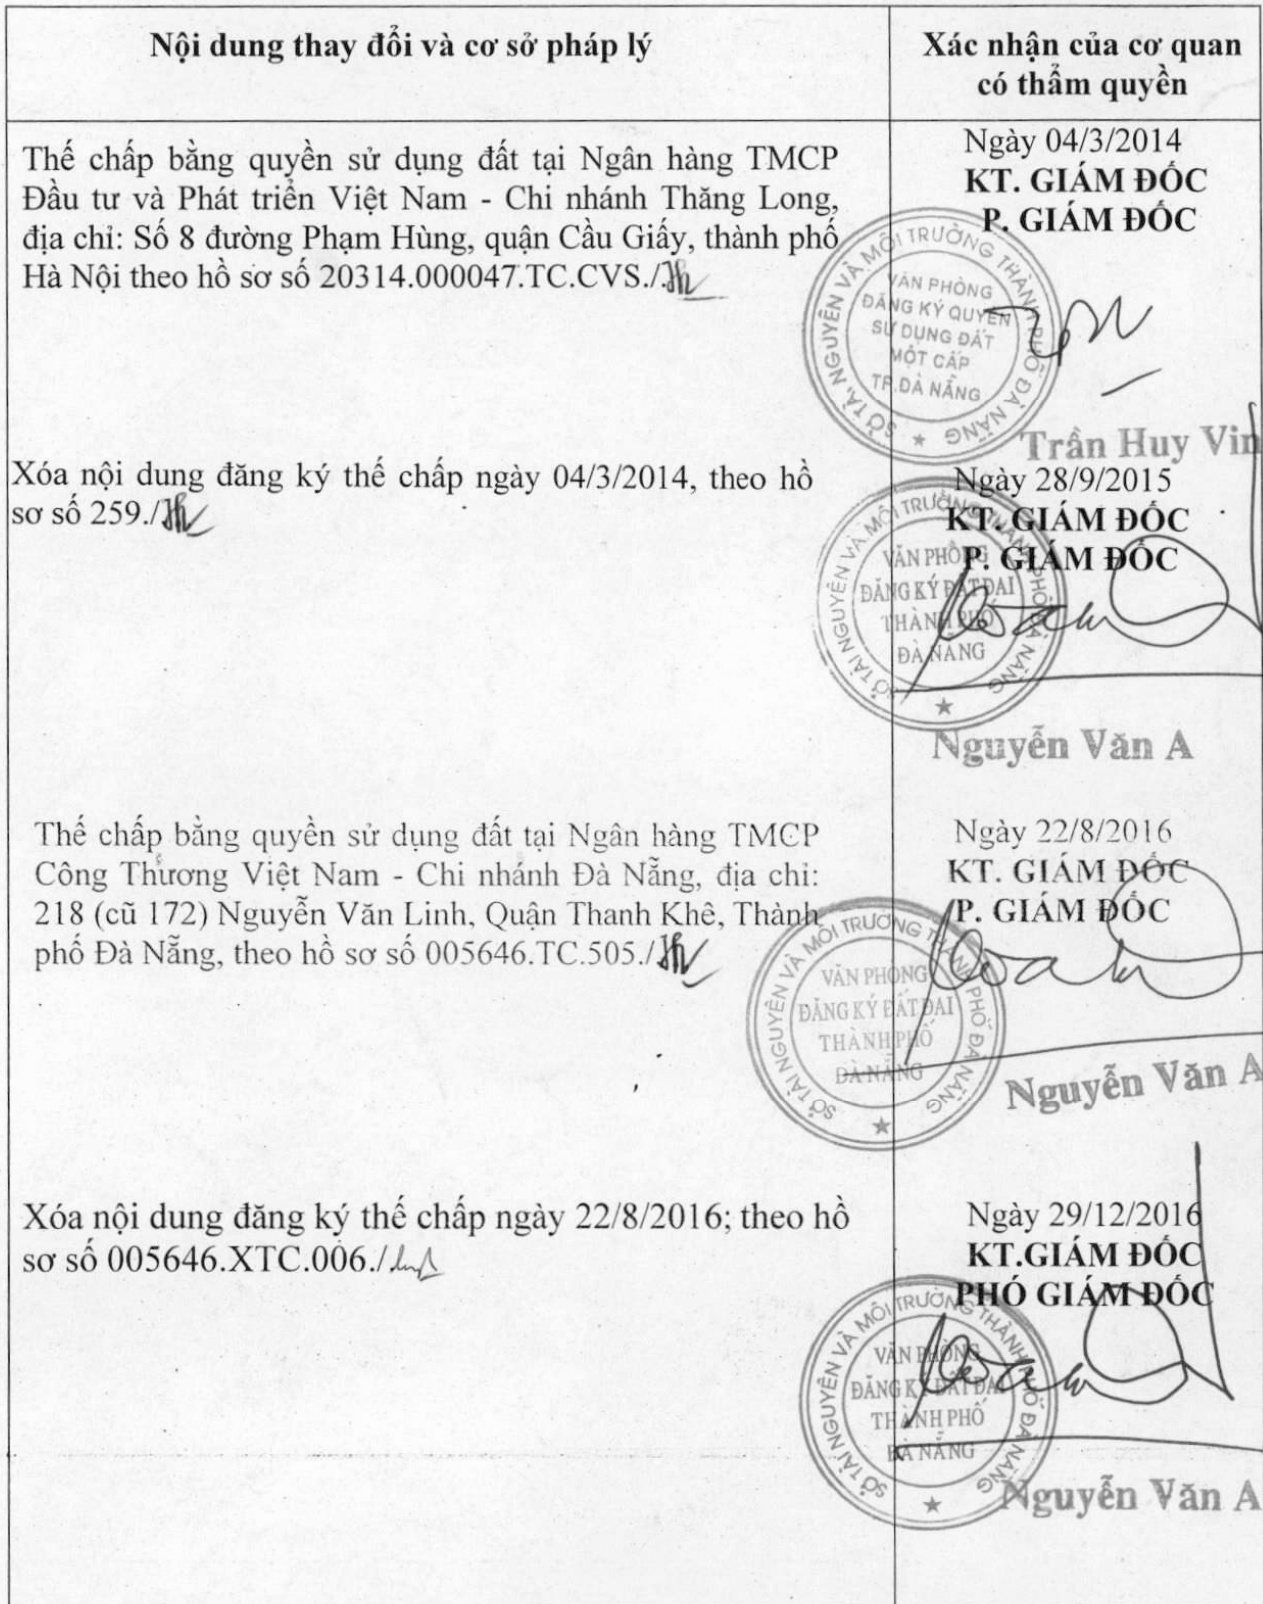 Nội dung thay đổi và cơ sở pháp lý
Xác nhận của cơ quan
có thẩm quyền
Thế chấp bằng quyền sử dụng đất tại Ngân hàng TMCP
Đầu tư và Phát triển Việt Nam - Chi nhánh Thăng Long,
địa chỉ: Số 8 đường Phạm Hùng, quận Cầu Giấy, thành phố
Hà Nội theo hồ sơ số 20314.000047.TC.CVS./.
Ngày 04/3/2014
KT. GIÁM ĐỐC
P. GIÁM ĐỐC
SỞ TÀI NGUYÊN VÀ MÔI TRƯỜNG THÀNH PHỐ ĐÀ NẴNG
VĂN PHÒNG
ĐĂNG KÝ QUYỀN
SỬ DỤNG ĐẤT
MỘT CẤP
TP.ĐÀ NẴNG
Trần Huy Vin
Xóa nội dung đăng ký thế chấp ngày 04/3/2014, theo hồ
sơ số 259./
Ngày 28/9/2015
KT. GIÁM ĐỐC
P. GIÁM ĐỐC
SỞ TÀI NGUYÊN VÀ MÔI TRƯỜNG THÀNH PHỐ ĐÀ NẴNG
VĂN PHÒNG
ĐĂNG KÝ ĐẤT ĐAI
THÀNH PHỐ
ĐÀ NẴNG
Nguyễn Văn A
Thế chấp bằng quyền sử dụng đất tại Ngân hàng TMCP
Công Thương Việt Nam - Chi nhánh Đà Nẵng, địa chỉ:
218 (cũ 172) Nguyễn Văn Linh, Quận Thanh Khê, Thành
phố Đà Nẵng, theo hồ sơ số 005646.TC.505./
Ngày 22/8/2016
KT. GIÁM ĐỐC
P. GIÁM ĐỐC
SỞ TÀI NGUYÊN VÀ MÔI TRƯỜNG THÀNH PHỐ ĐÀ NẴNG
VĂN PHÒNG
ĐĂNG KÝ ĐẤT ĐAI
THÀNH PHỐ
ĐÀ NẴNG
Nguyễn Văn A
Xóa nội dung đăng ký thế chấp ngày 22/8/2016; theo hồ
sơ số 005646.XTC.006./
Ngày 29/12/2016
KT.GIÁM ĐỐC
PHÓ GIÁM ĐỐC
SỞ TÀI NGUYÊN VÀ MÔI TRƯỜNG THÀNH PHỐ ĐÀ NẴNG
VĂN PHÒNG
ĐĂNG KÝ ĐẤT ĐAI
THÀNH PHỐ
ĐÀ NẴNG
Nguyễn Văn A